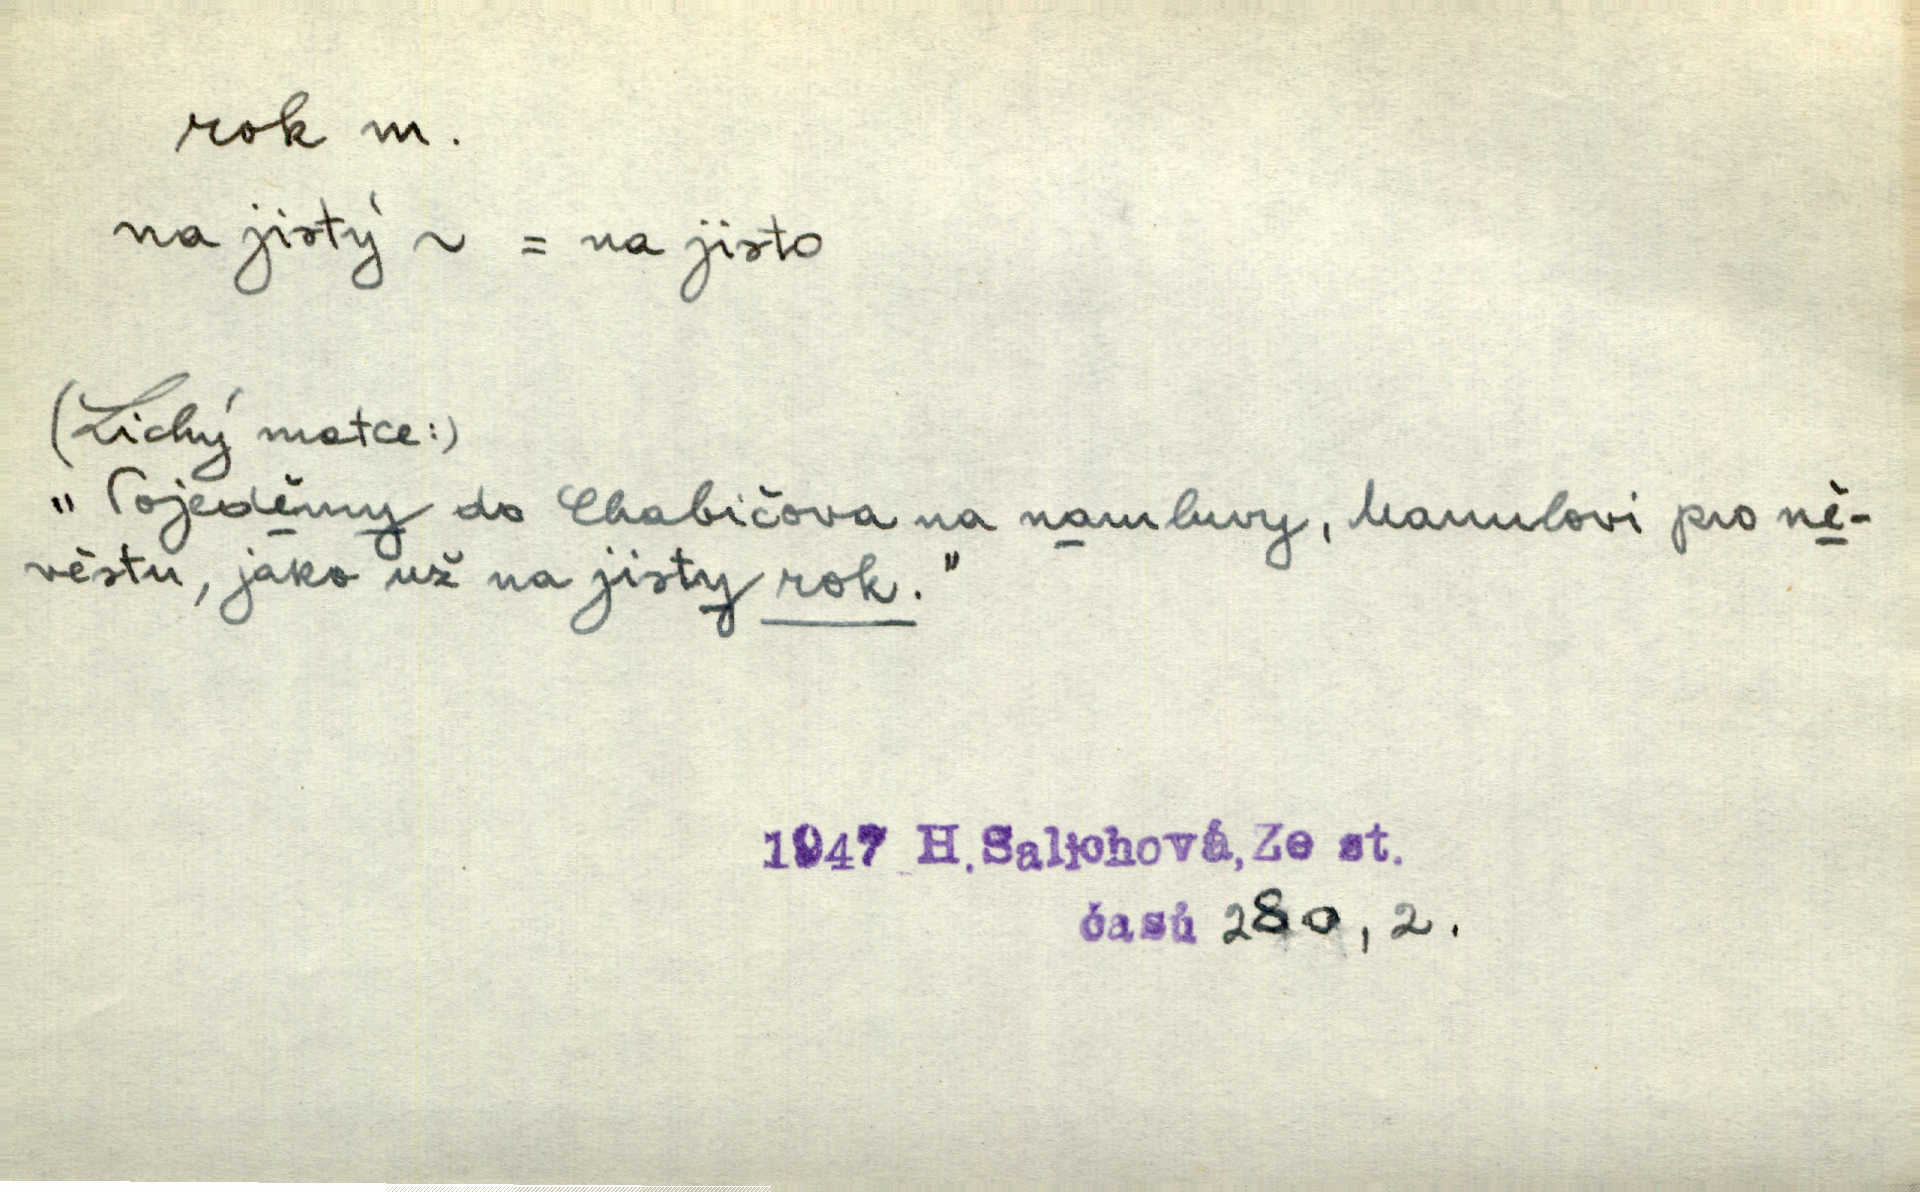 rok m.
na jistý ~ = na jisto
(Lichý matce:)
" Pojeděmy do Chabičova na namluvy, Hanulovi pro ně-
věstu, jako už na jisty rok."
1947 H.Salichová, Ze st.
časů 280, 2.